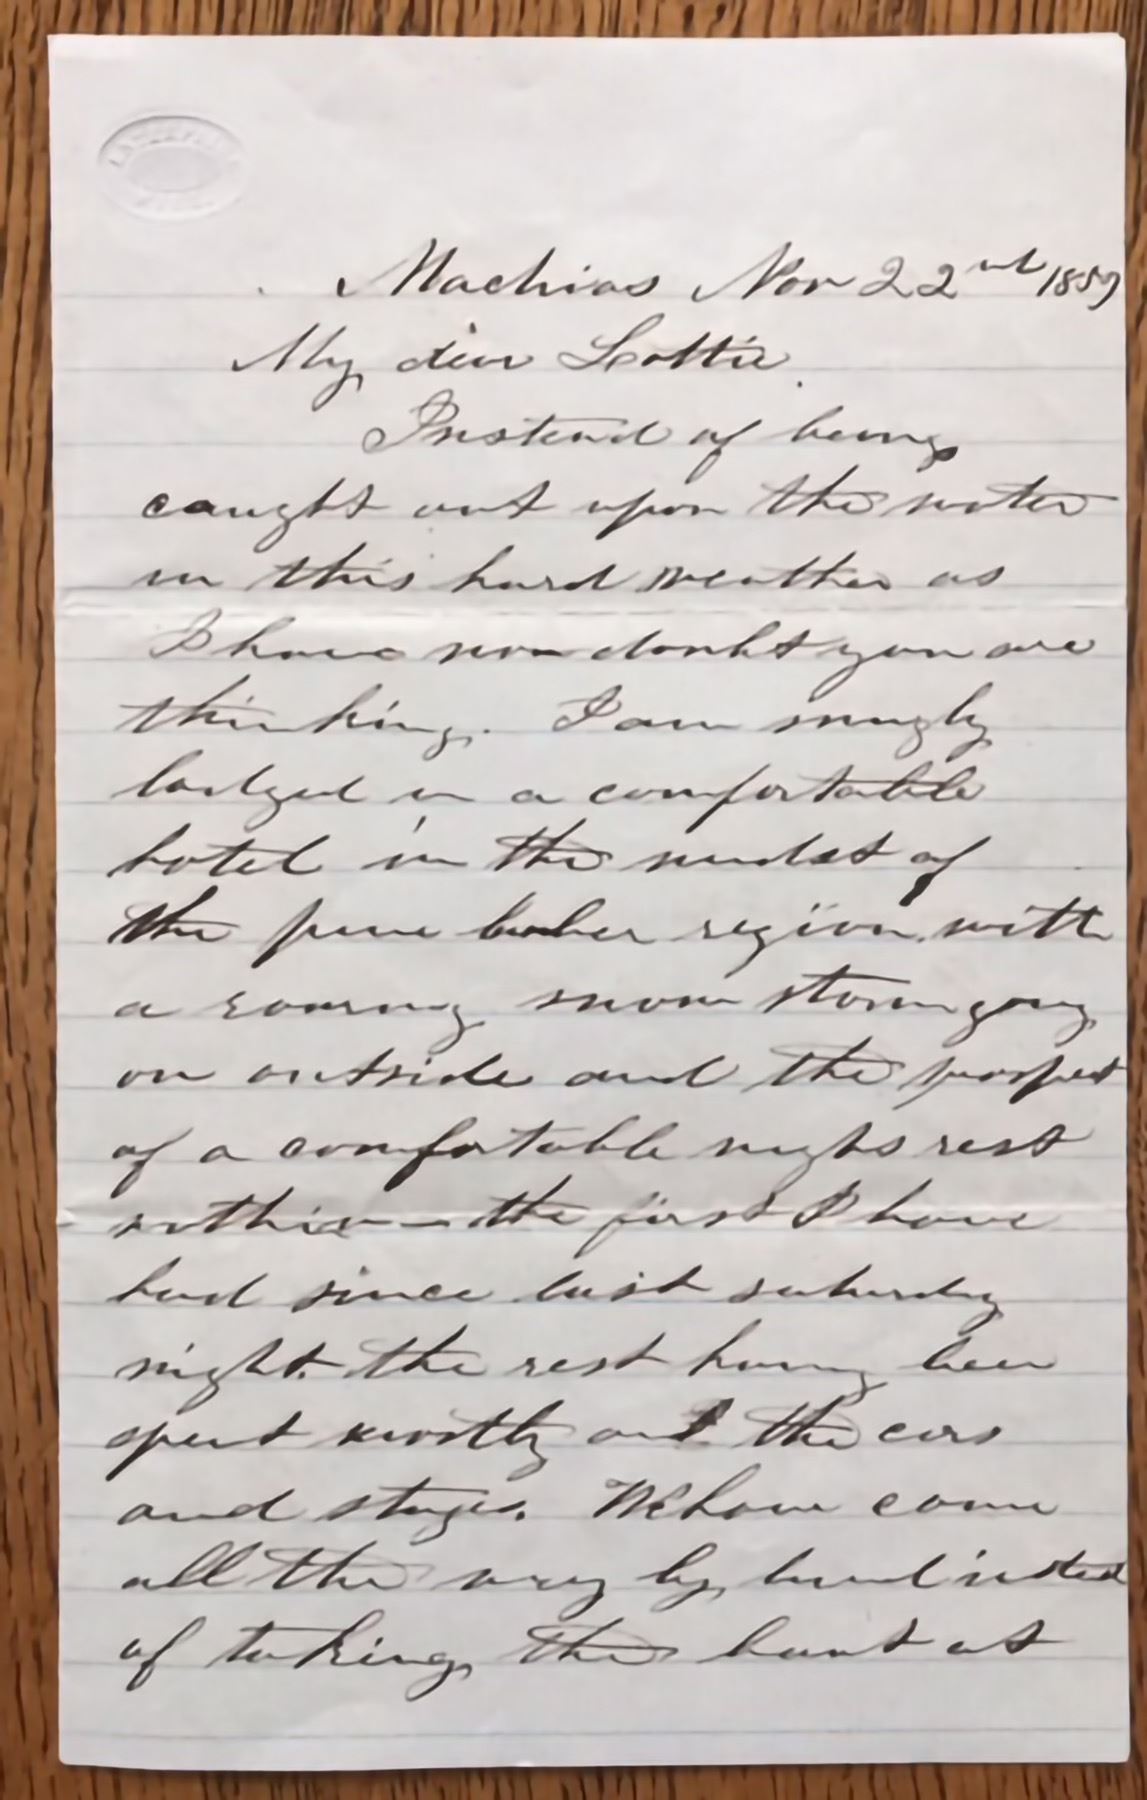 Machias Nov 22nd 1857
My dear Lottie.
Instead of being
caught out upon the water
in this hard weather as
I have now doubt you are
thinking. I am snugly
lodged in a comfortable
hotel in the midst of
the pine lumber region with
a roaring snow storm going
on outside and the prospect
of a comfortable nights rest
within — the first I have
had since last saturday
night. the rest having been
spent mostly on the cars
and stages. We have come
all the way by land insted
of taking the boat at